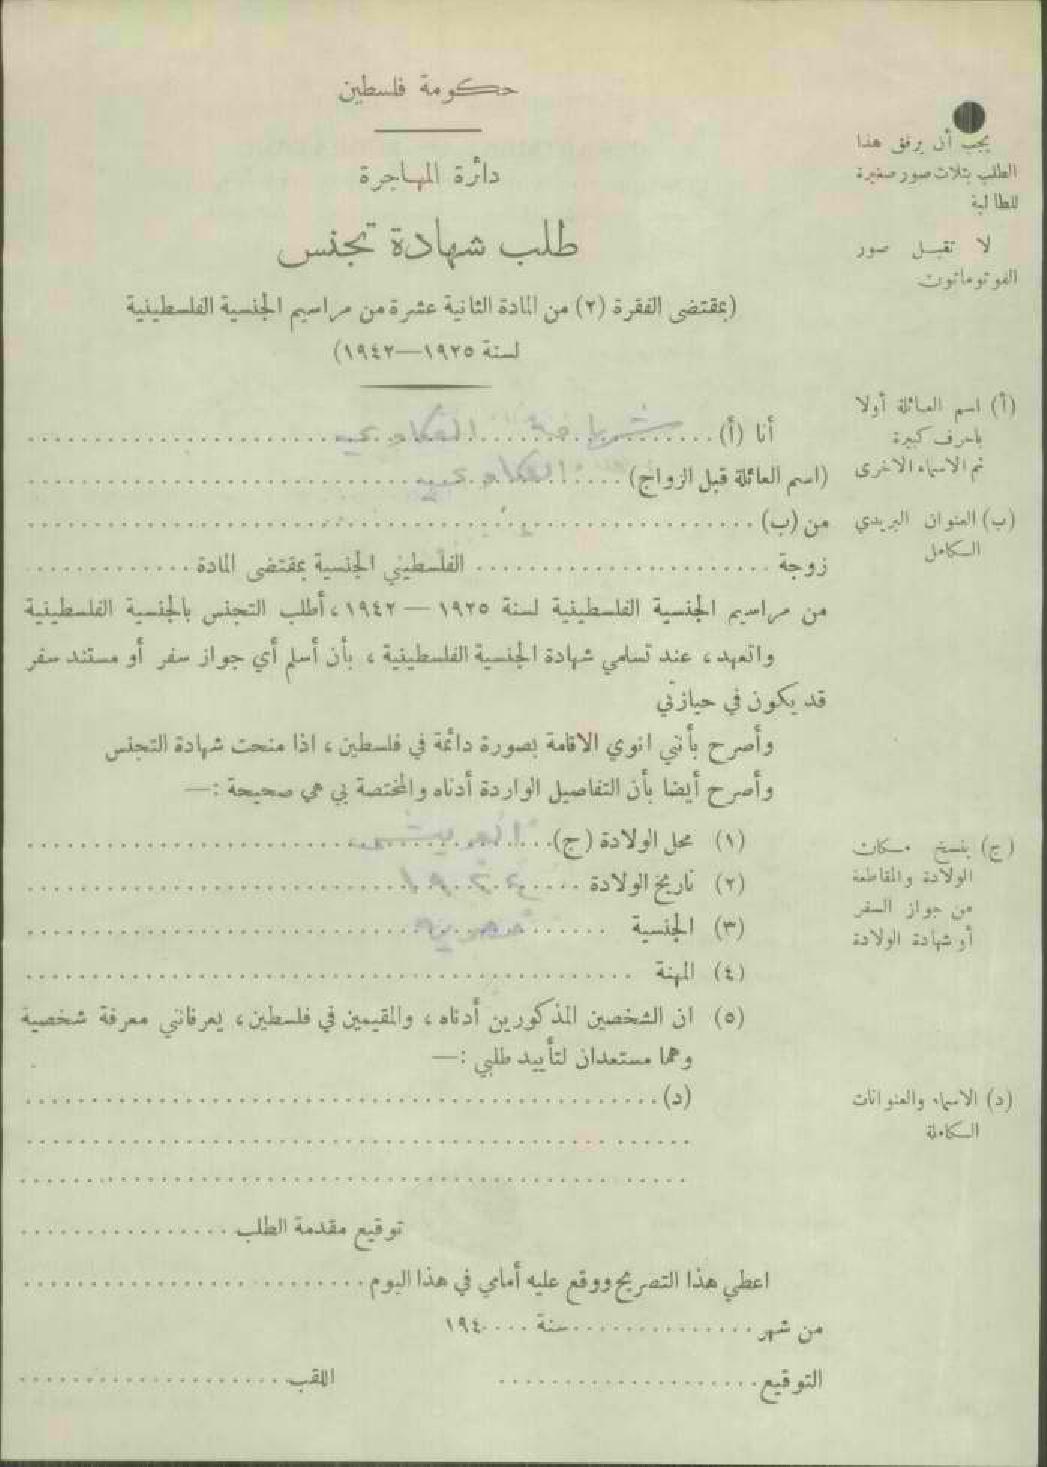 حكومة فلسطين
دائرة المهاجرة
طلب شهادة تجنس
(بمقتضى الفقرة (٢) من المادة الثانية عشرة من مراسيم الجنسية الفلسطينية
لسنة ١٩٢٥—١٩٤٢)
يجب أن يرفق هذا
الطلب بثلاث صور صغيرة
للطالبة
لا تقبل صور
الفوتوماتون
أنا (أ)
(أ) اسم العائلة أولا
باحرف كبيرة
ثم الاسماء الاخرى
(اسم العائلة قبل الزواج)
من (ب)
(ب) العنوان البريدي
الكامل
زوجة ........ الفلسطيني الجنسية بمقتضى المادة ........
من مراسيم الجنسية الفلسطينية لسنة ١٩٢٥ — ١٩٤٢، أطلب التجنس بالجنسية الفلسطينية
واتعهد، عند تسلمي شهادة الجنسية الفلسطينية، بأن أسلم أي جواز سفر أو مستند سفر
قد يكون في حيازتي
وأصرح بأنني انوي الاقامة بصورة دائمة في فلسطين، اذا منحت شهادة التجنس
وأصرح أيضا بأن التفاصيل الواردة أدناه والمختصة بي هي صحيحة :—
(١) محل الولادة (ج) العريش
(ج) ينسخ مكان
الولادة والمقاطعة
من جواز السفر
أو شهادة الولادة
(٢) تاريخ الولادة
(٣) الجنسية مصرية
(٤) المهنة
(٥) ان الشخصين المذكورين أدناه، والمقيمين في فلسطين، يعرفانني معرفة شخصية
وهما مستعدان لتأييد طلبي :—
(د)
(د) الاسماء والعنوانات
الكاملة
توقيع مقدمة الطلب
اعطي هذا التصريح ووقع عليه أمامي في هذا اليوم
من شهر ........ سنة .... ١٩٤
التوقيع ........ اللقب ........